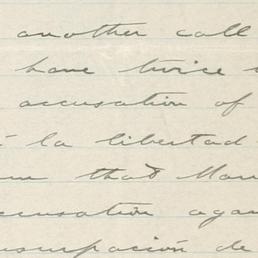 another call
have twice
accusation of
á la libertad
that Man
cusation agai
usurpación de